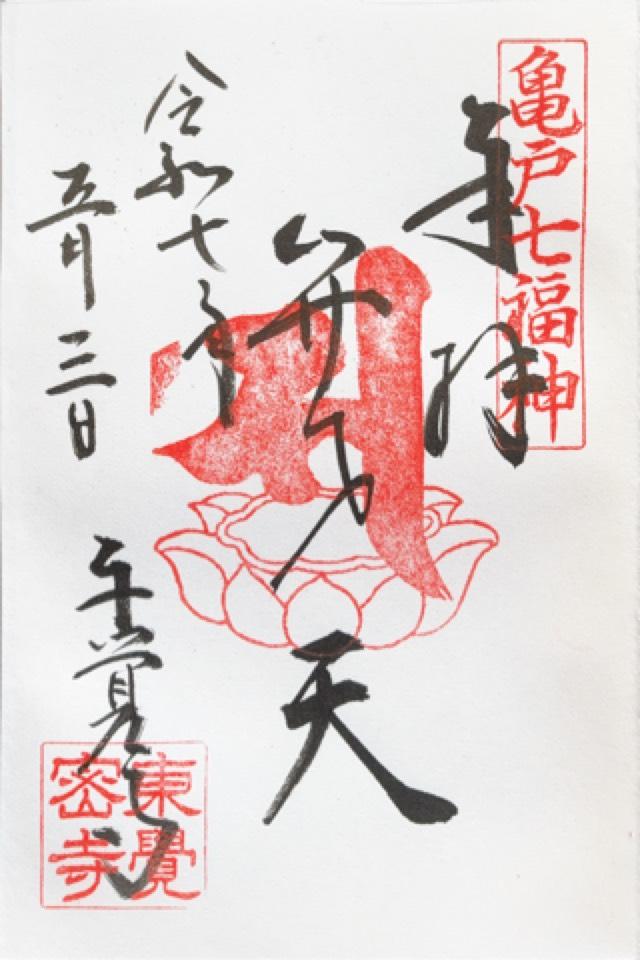 亀戸七福神
奉拝
弁才天
令和七年
五月三日
東覚寺
東覺
密寺